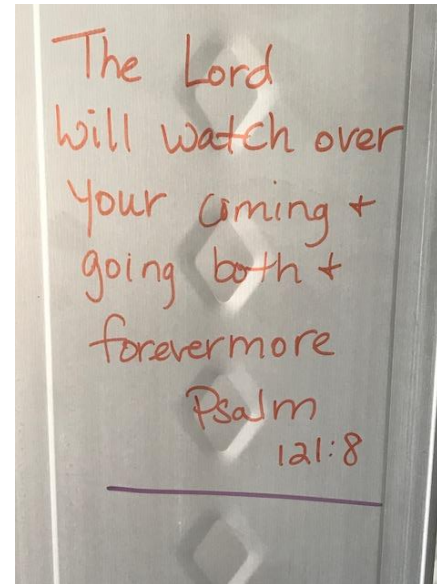 The Lord
will watch over
your coming +
going both +
forevermore
Psalm
121:8